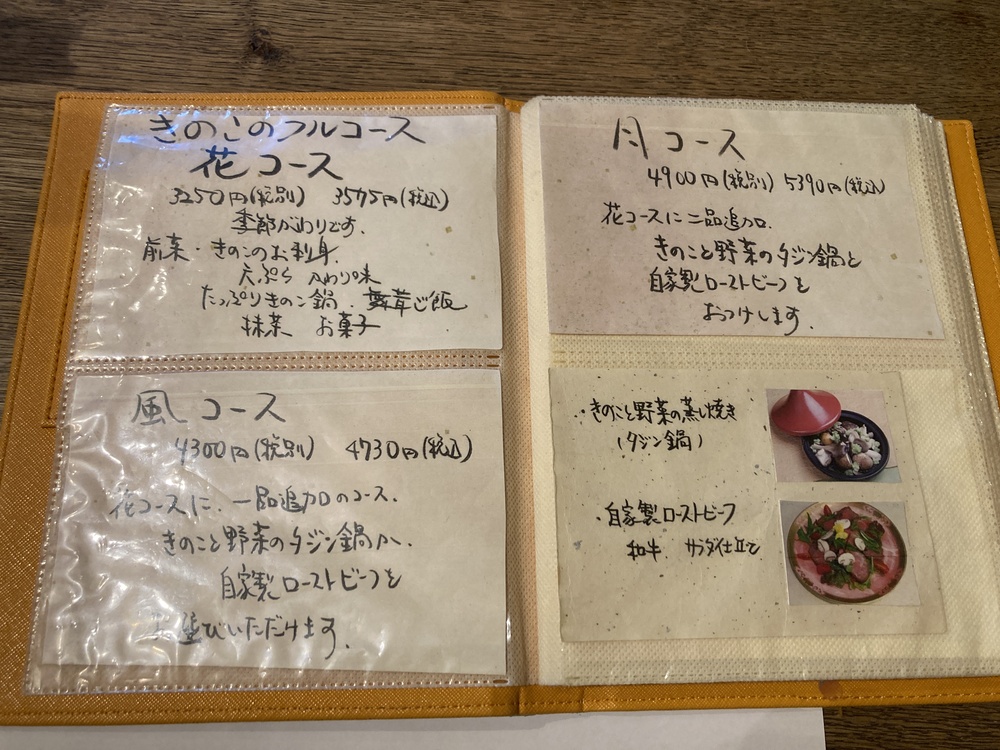 きのこのフルコース
花コース
3250円(税別) 3575円(税込)
季節がわりです。
前菜・きのこのお刺身
天ぷら 入わり味
たっぷりきのこ鍋・舞茸ご飯
抹茶 お菓子
風コース
4300円(税別) 4730円(税込)
花コースに、一品追加のコース。
きのこと野菜のタジン鍋か、
自家製ローストビーフを
お選びいただけます。
月コース
4900円(税別) 5390円(税込)
花コースに二品追加。
きのこと野菜のタジン鍋と
自家製ローストビーフを
おつけします。
・きのこと野菜の蒸し焼き
(タジン鍋)
・自家製ローストビーフ
和牛 サラダ仕立て